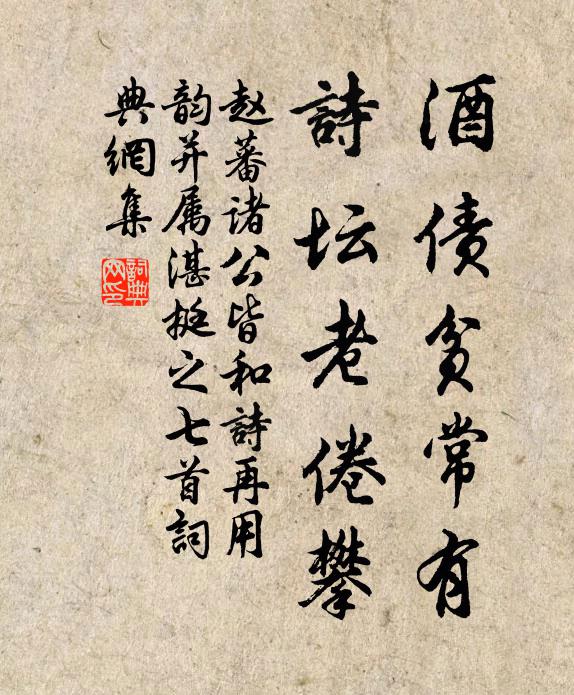 酒债贫常有
詩坛老倦攀
赵蕃诸公皆和詩再用
韵并属湛挺之七首詞
典網集
詞典
网印